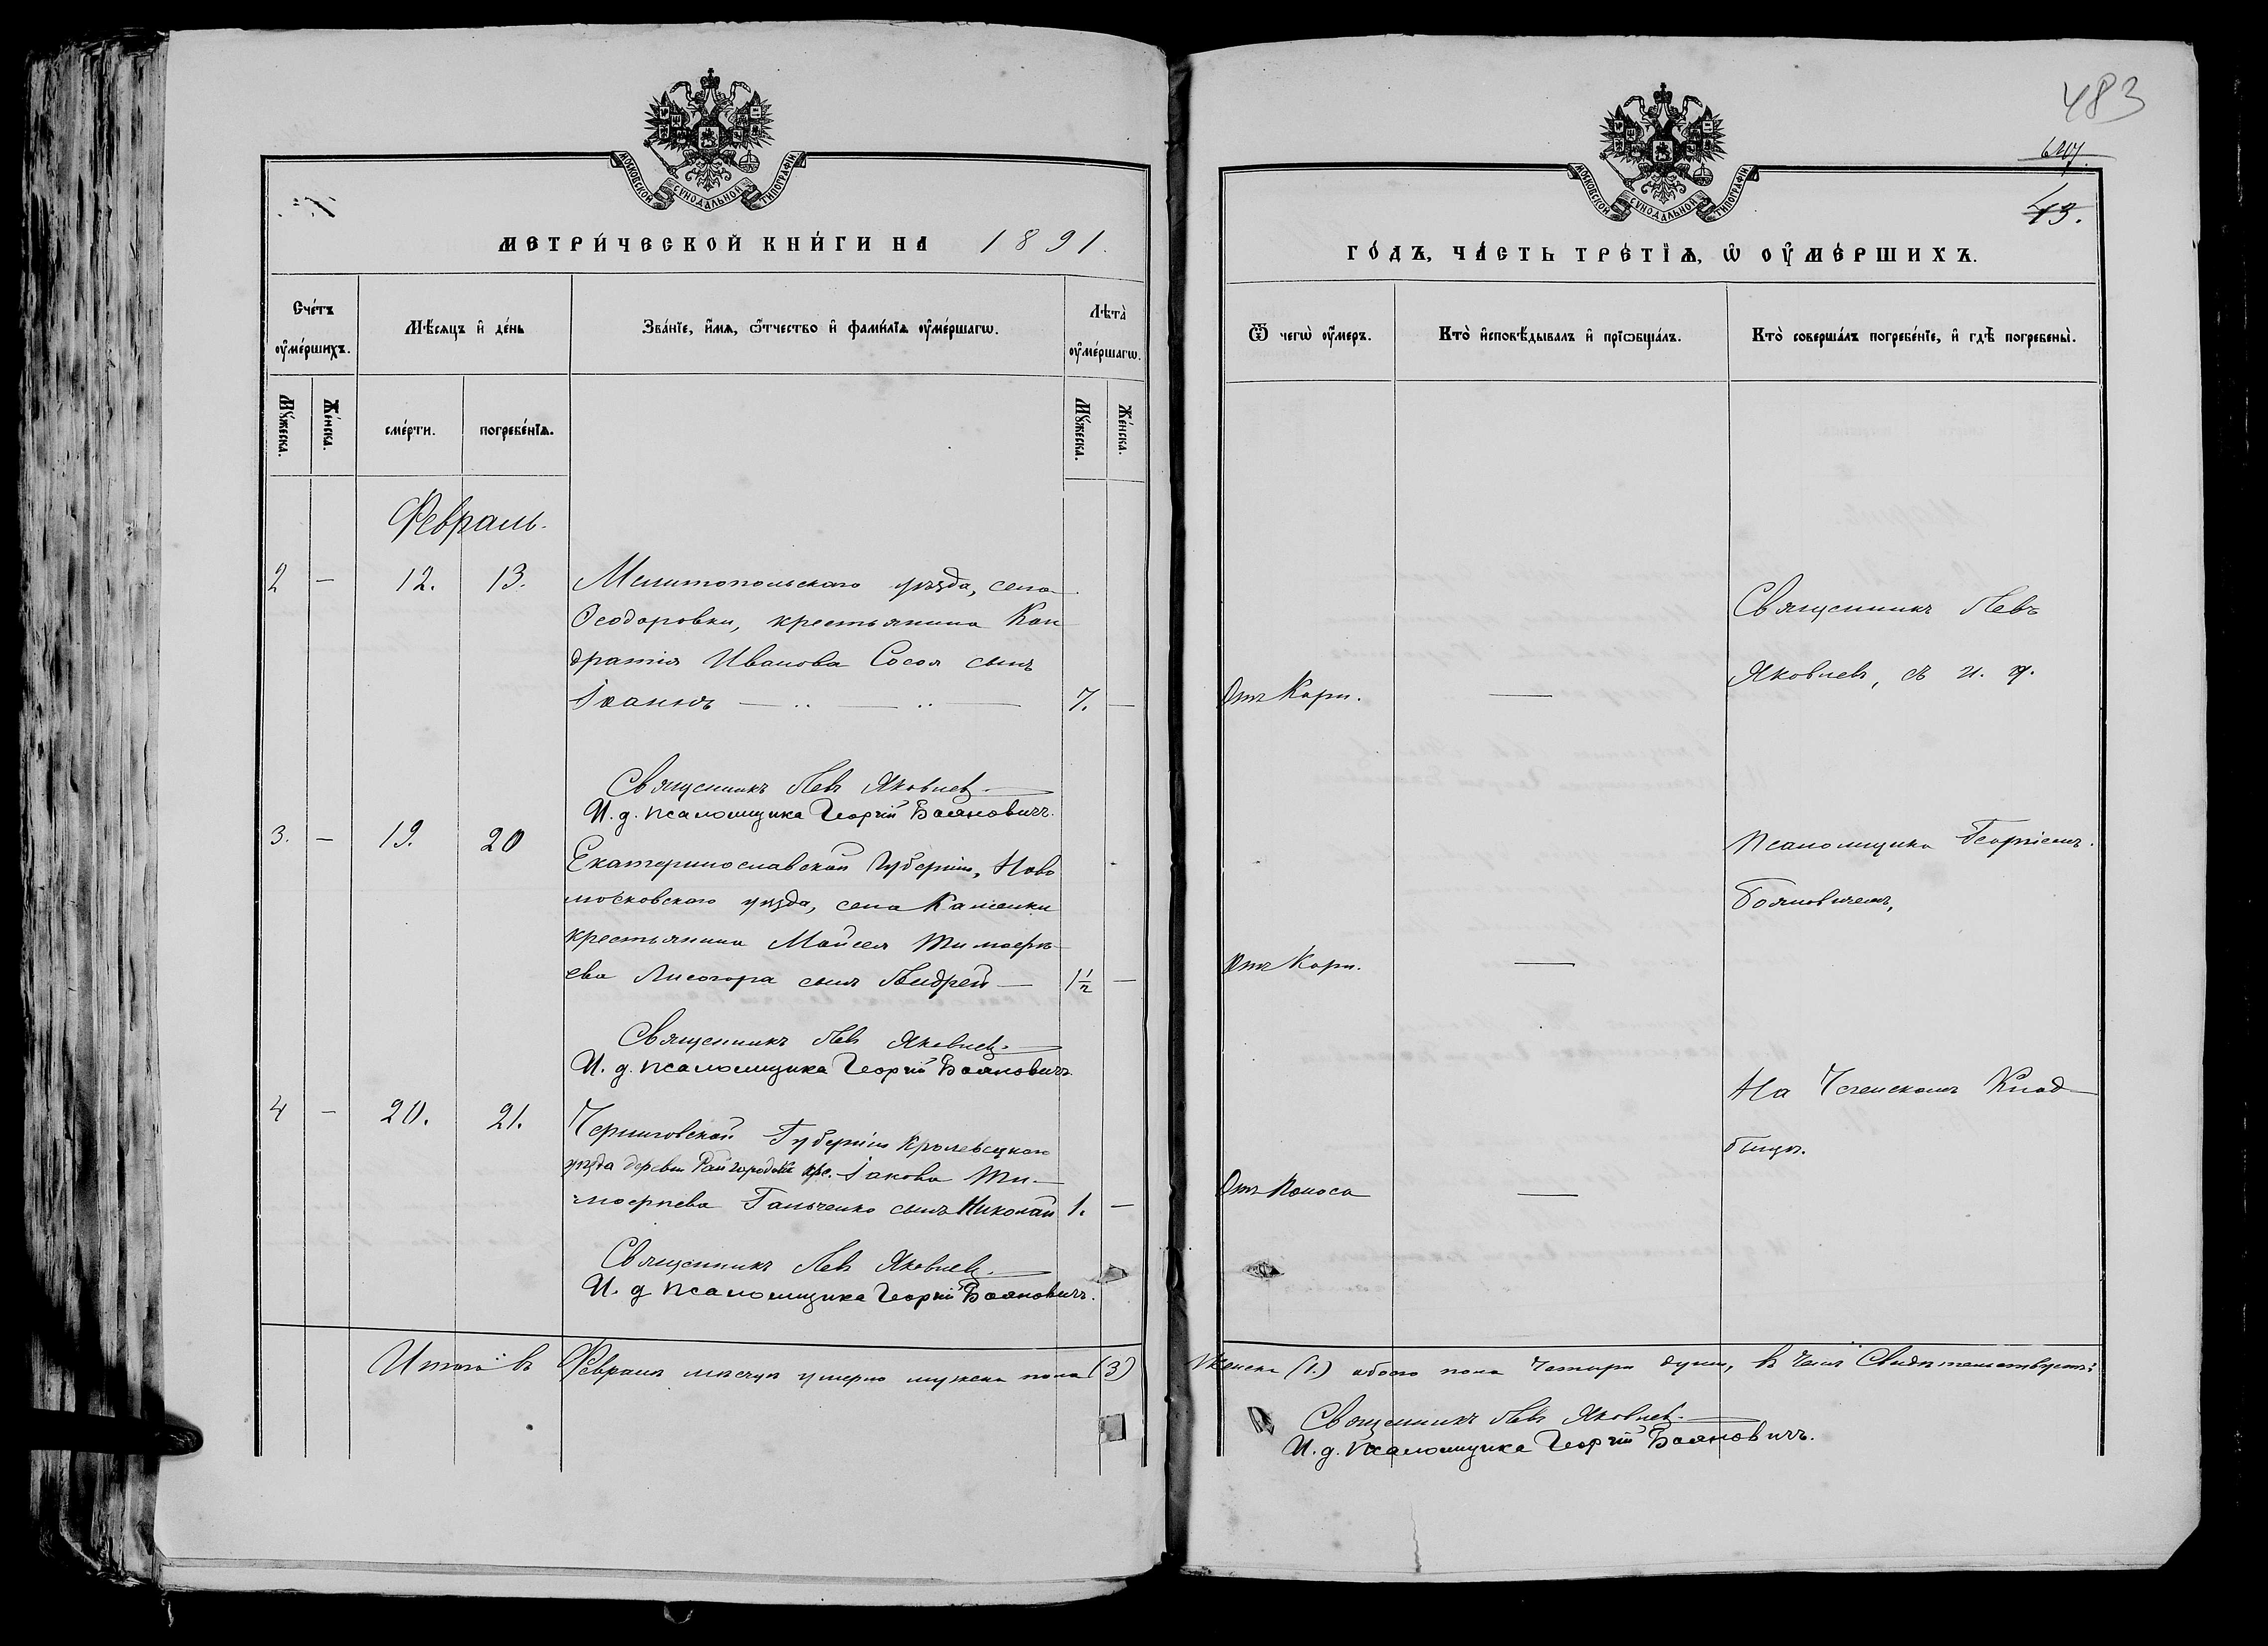 483
647
43.
МОСКОВСКОЙ СѴНОДАЛЬНОЙ ТИПОГРАФІИ
МОСКОВСКОЙ СѴНОДАЛЬНОЙ ТИПОГРАФІИ
МЕТРИ́ЧЕСКОЙ КНИ́ГИ НА 1891.
ГО́ДЪ, ЧА́СТЬ ТРЕ́ТІѦ, Ѡ ОУ҆МЕ́РШИХЪ.
Сче́тъ оу҆ме́ршихъ.
Мѣ́сяцъ и҆ де́нь
Зва́нїе, и҆́мѧ, ѻ҆́тчество и҆ фами́лїѧ оу҆ме́ршагѡ.
Лѣта̀ оу҆ме́ршагѡ.
Ѿ чегѡ̀ оу҆́меръ.
Кто̀ и҆сповѣ́дывалъ и҆ прїѡбща́лъ.
Кто̀ соверша́лъ погребе́нїе, и҆ гдѣ̀ погребены̀.
Мꙋ́жеска.
Же́нска.
сме́рти.
погребе́нїѧ.
Мꙋ́жеска.
Же́нска.
Февраль.
2 — 12. 13. Мелитопольскаго уѣзда, села
Ѳеодоровки, крестьянина Кон
дратія Иванова Сосоя сынъ
Іоаннъ — .. — .. — 7. —
Отъ Кори. —
Священникъ Левъ
Яковлевъ, съ и. д.
Священникъ Левъ Яковлевъ.
И. д. псаломщика Георгій Бояновичъ.
3. — 19. 20 Екатеринославской губерніи, Ново
московскаго уѣзда, села Каменки
крестьянина Моисея Тимоѳѣ
ева Лисогора сынъ Андрей — 1½ —
Отъ Кори. —
псаломщика Георгіемъ
Бояновичемъ,
Священникъ Левъ Яковлевъ.
И. д. псаломщика Георгій Бояновичъ.
4 — 20. 21. Черниговской Губерніи Кролевецкаго
уѣзда деревни Райгородка кре. Іакова Ти-
моѳѣева Гальченко сынъ Николай 1. —
Отъ Поноса —
На Клад
бищѣ.
Священникъ Левъ Яковлевъ.
И. д. псаломщика Георгій Бояновичъ.
Итого въ Февралѣ мѣсяцѣ умерло мужеска пола (3)
Женска (1.) обоего пола Четыре души, въ чемъ Свидѣтельствуемъ:
Священникъ Левъ Яковлевъ.
И. д. псаломщика Георгій Бояновичъ.